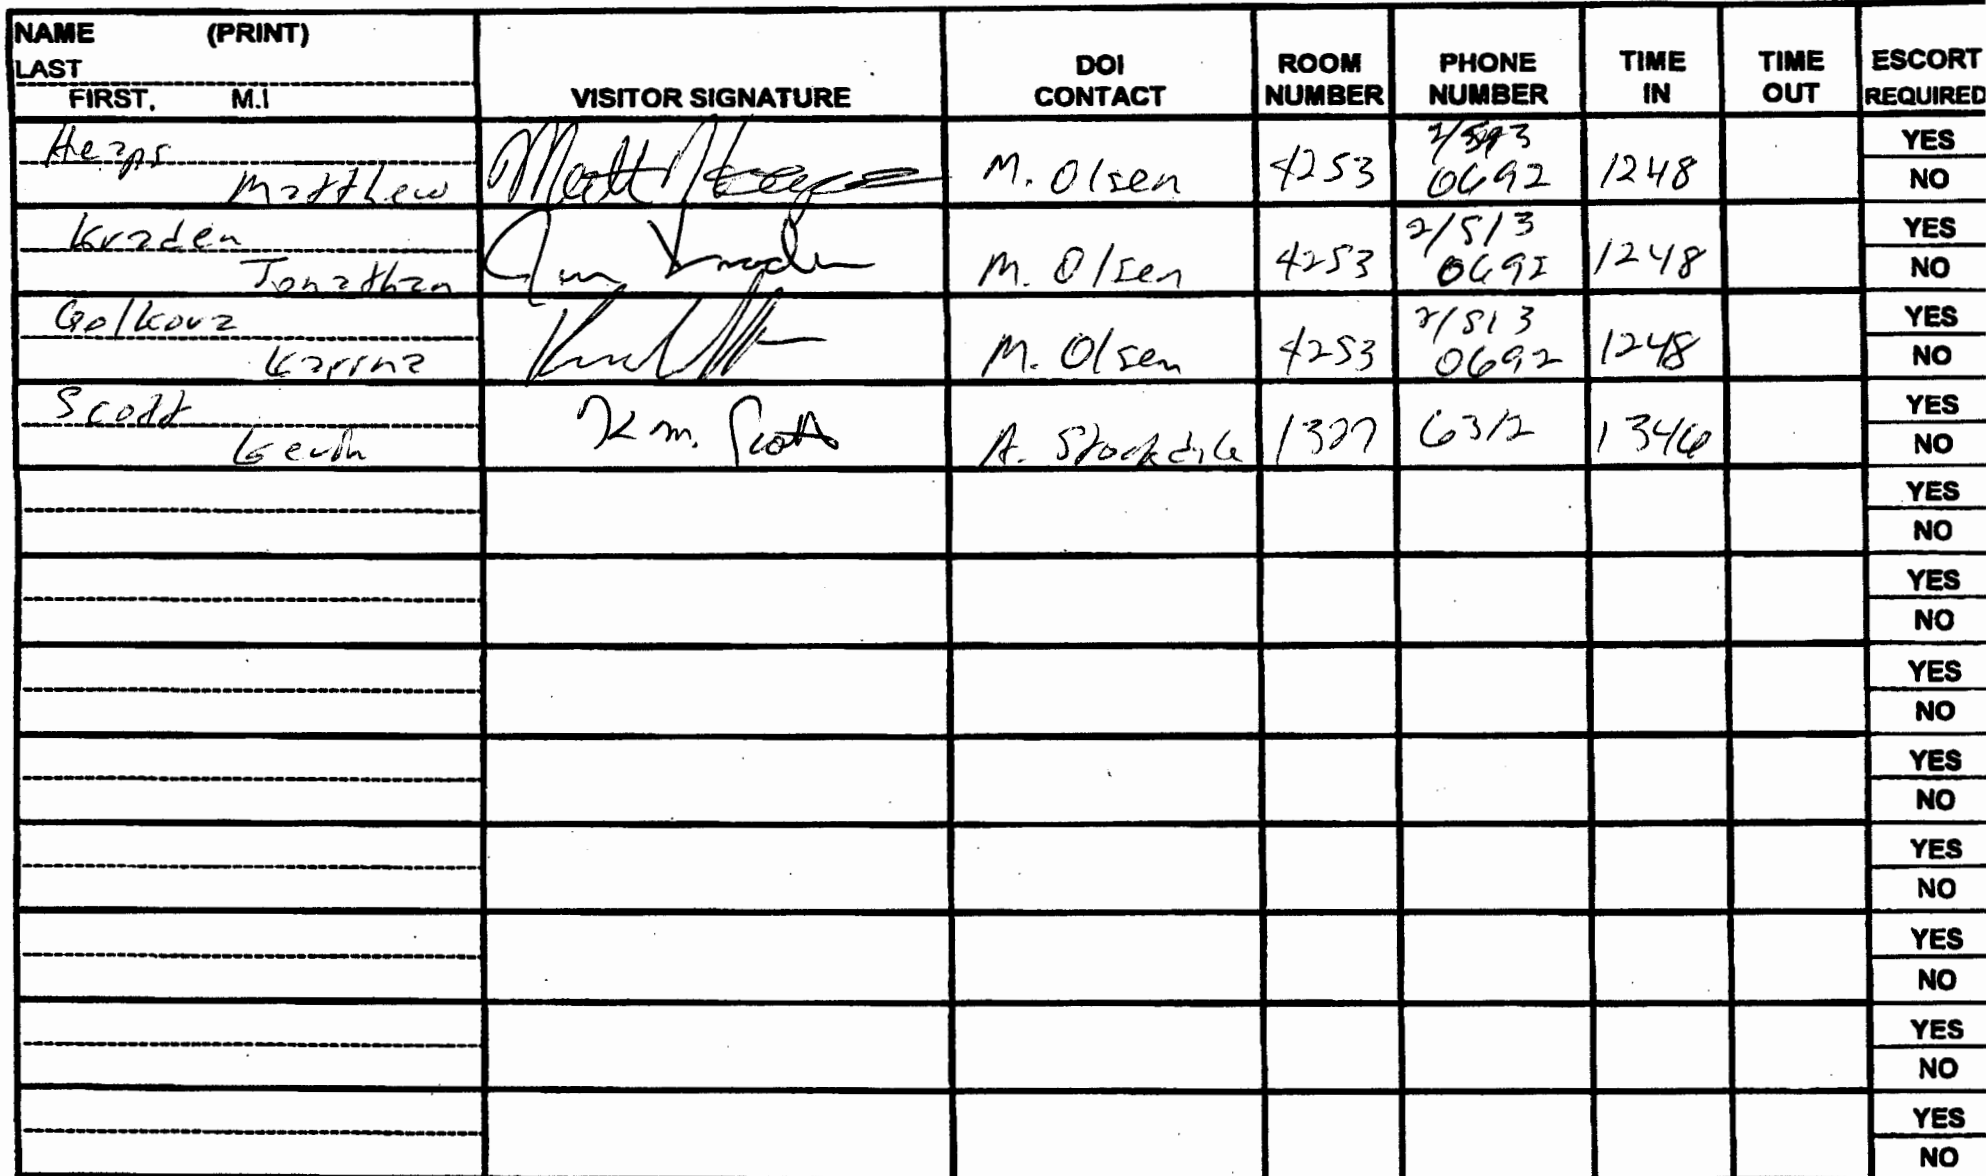 NAME (PRINT)
LAST
FIRST, M.I
VISITOR SIGNATURE
DOI
CONTACT
ROOM
NUMBER
PHONE
NUMBER
TIME
IN
TIME
OUT
ESCORT
REQUIRED
Heaps
Matthew
Matt Heaps
M. Olsen
4253
2/513
0692
1248
YES
NO
Kraden
Jonathan
Jon Kraden
M. Olsen
4253
2/513
0692
1248
YES
NO
Golkova
Karina
M. Olsen
4253
2/513
0692
1248
YES
NO
Scott
Kevin
K m. Scott
A. Stockdale
1327
6312
1346
YES
NO
YES
NO
YES
NO
YES
NO
YES
NO
YES
NO
YES
NO
YES
NO
YES
NO